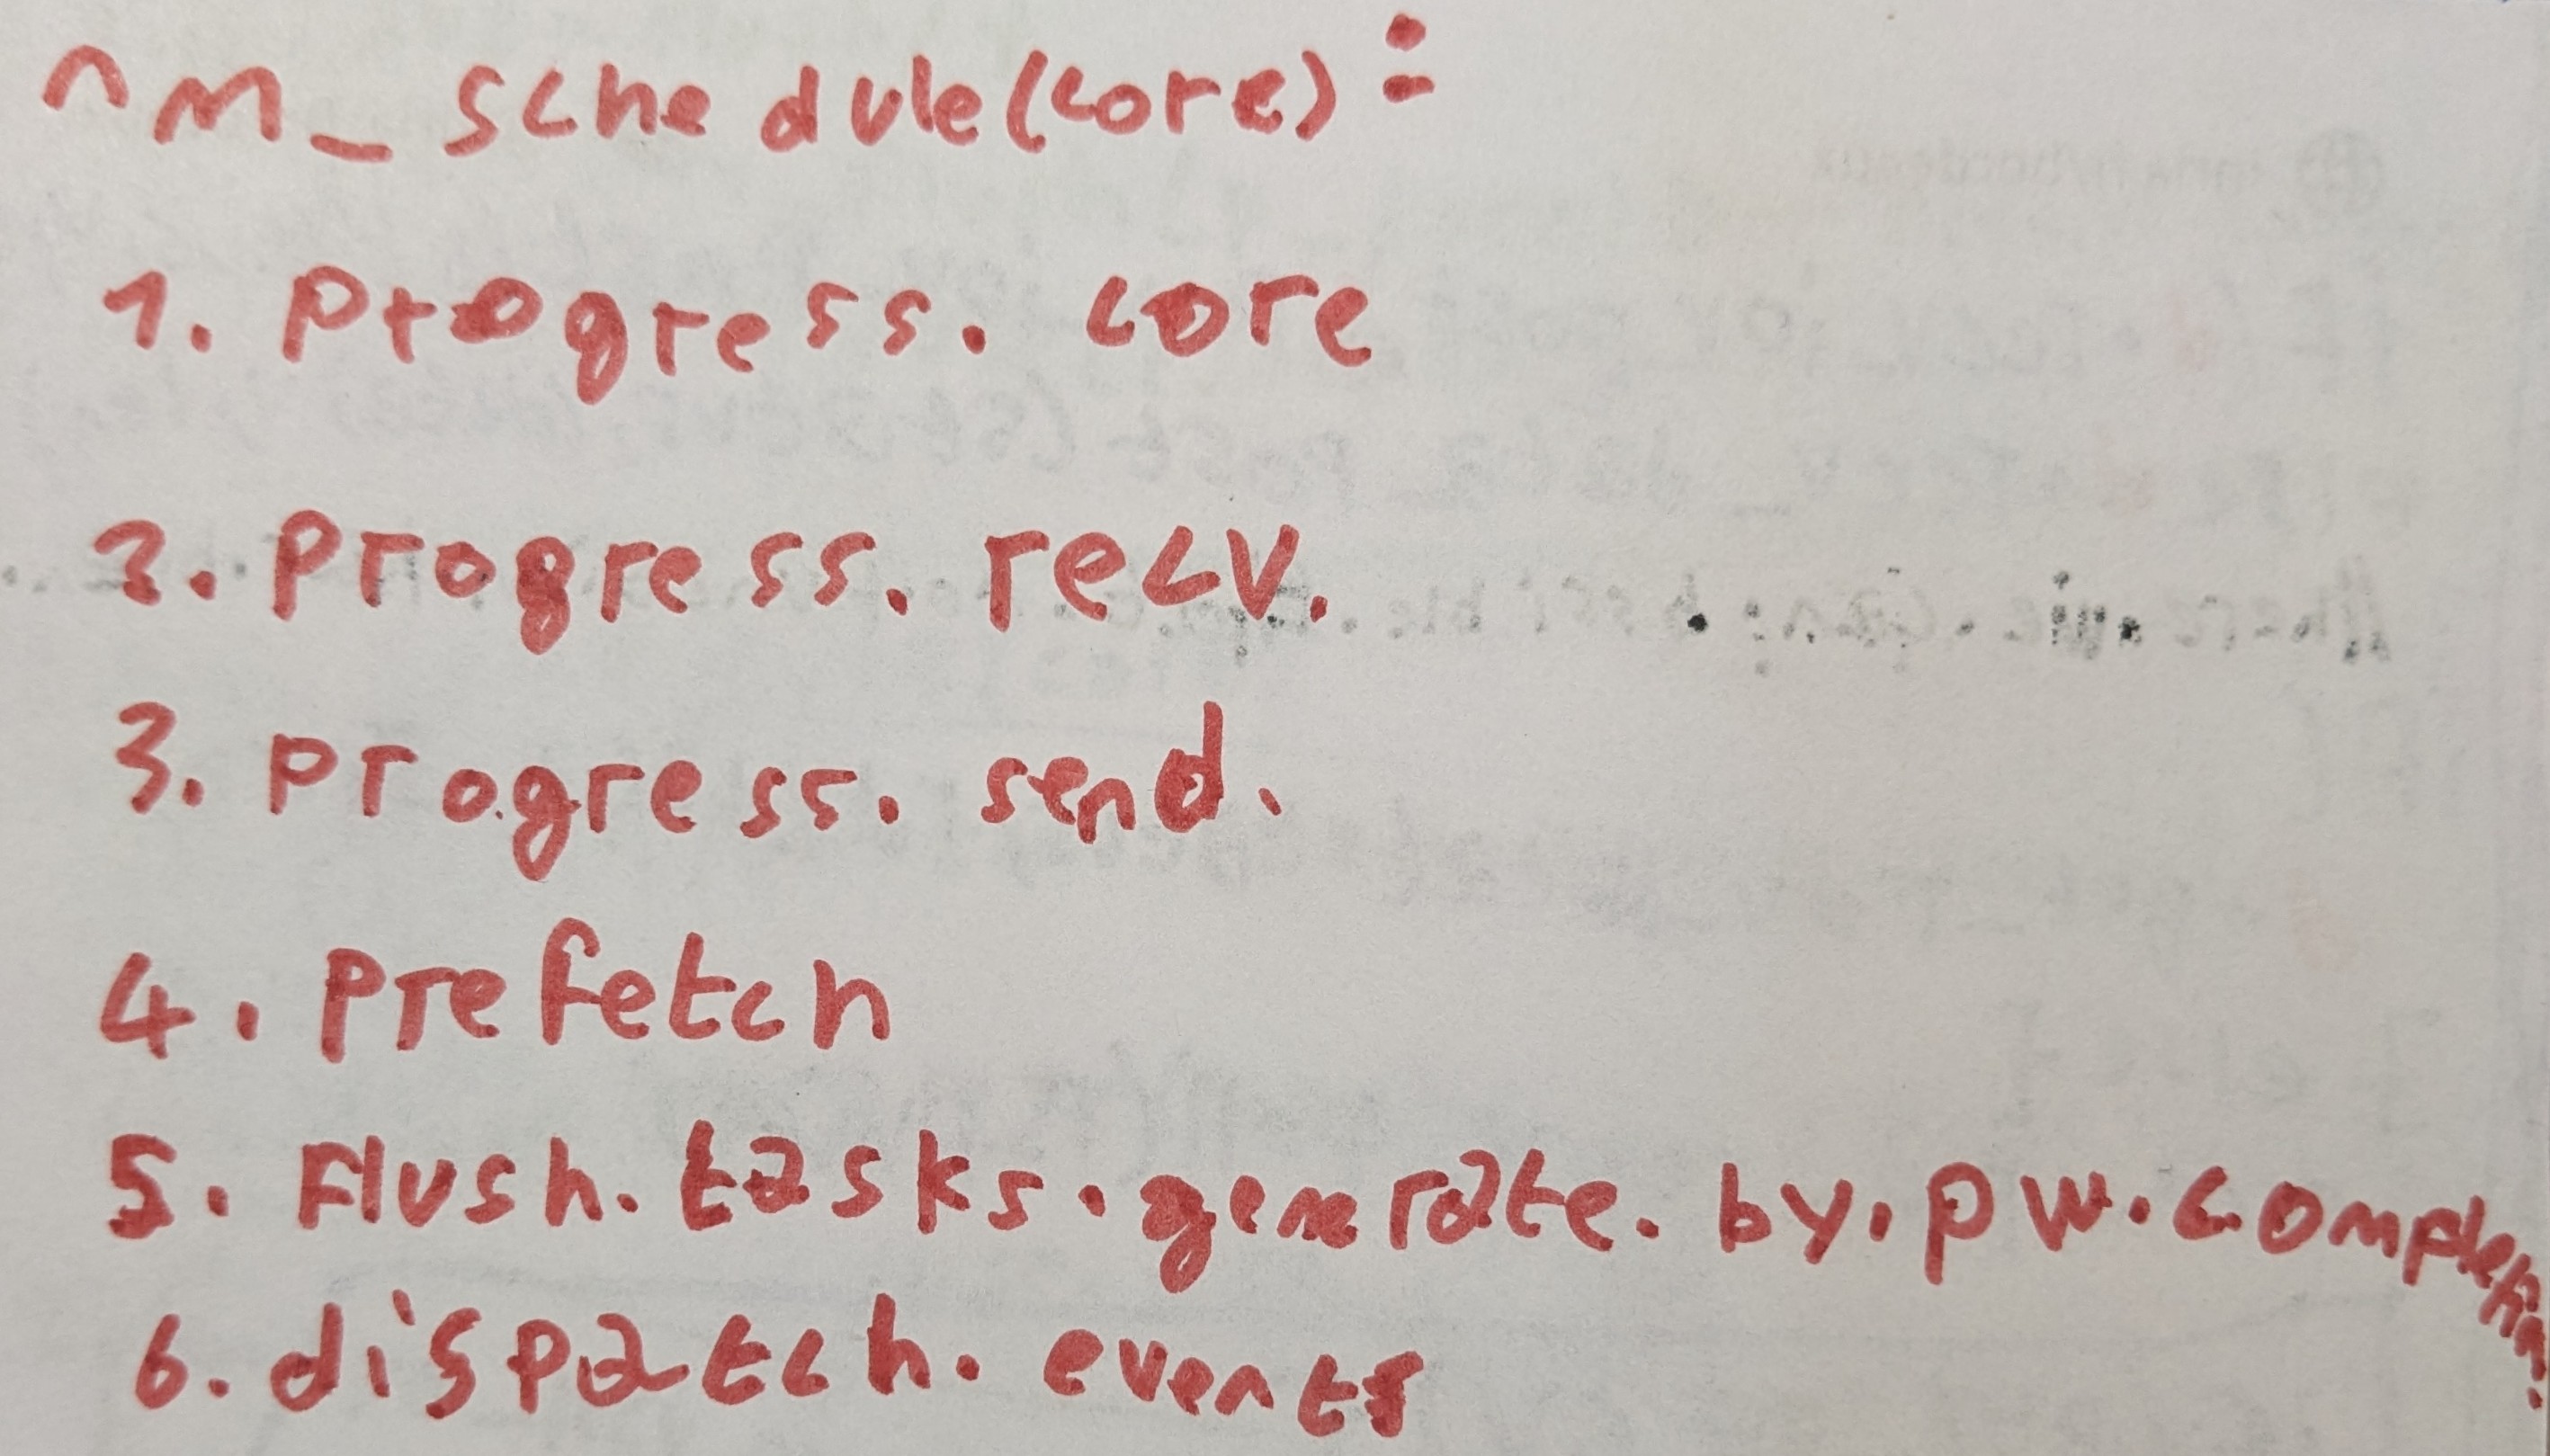 nm_schedule(core):
1. progress. core
2. progress. recv.
3. progress. send.
4. prefetch
5. Flush. tasks. generate. by. pw. completion.
6. dispatch. events